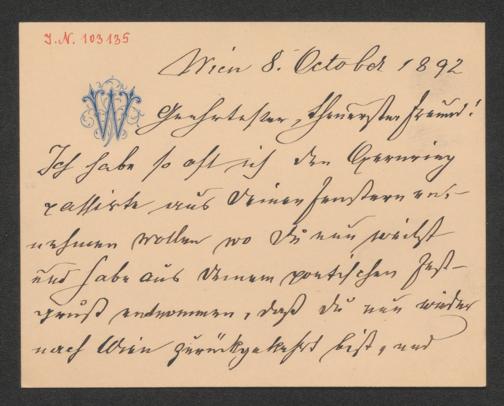 J.N. 103135
Wien 8. October 1892
W
Geehrtester, theuerster Freund!
Ich habe so oft ich den Opernring
passirte aus Deinen Fenstern ent-
nehmen wollen wo Du nun weilst
und habe aus Deinem poetischen Fest-
gruß entnommen, daß Du nun wieder
nach Wien zurückgekehrt bist, und